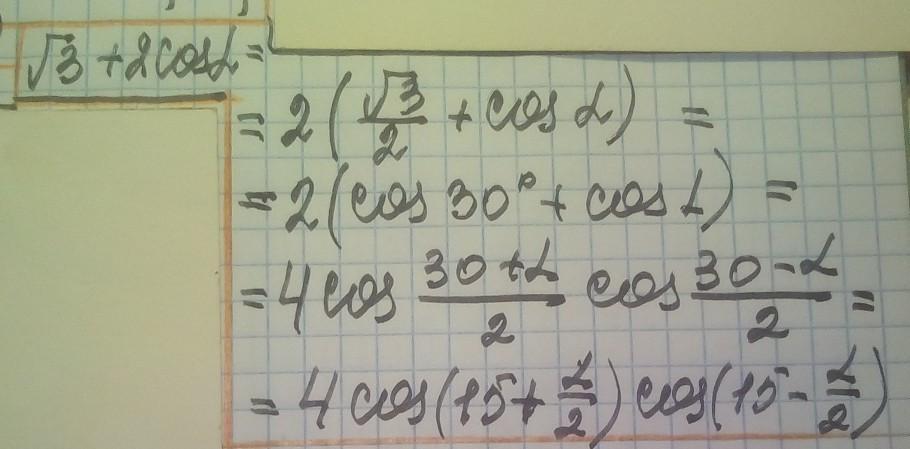 √3 + 2cosα =
= 2(√3/2 + cos α) =
= 2(cos 30° + cos α) =
= 4 cos (30+α)/2 cos (30-α)/2 =
= 4 cos(15+α/2) cos(15-α/2)